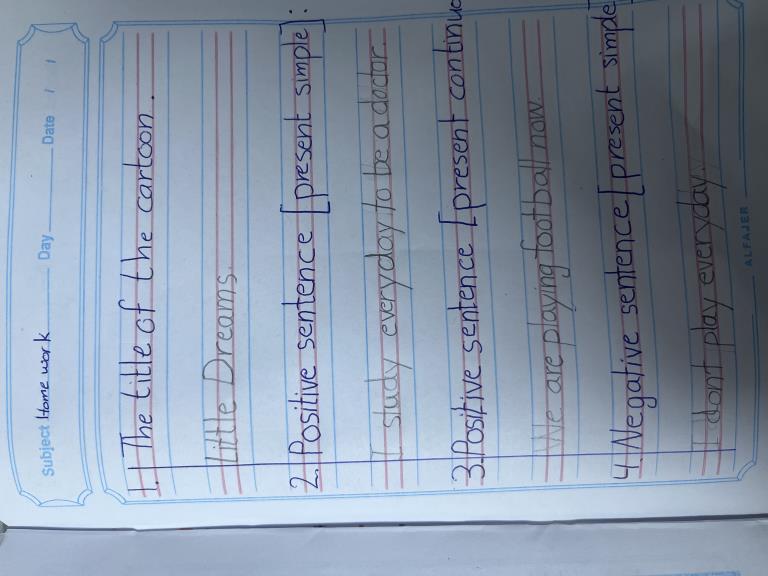 Subject Home work Day Date / /
1. The title of the cartoon.
Little Dreams.
2. Positive sentence [present simple]:
I study everyday to be a doctor.
3. Positive sentence [present continuo
We are playing football now.
4. Negative sentence [present simple
I dont play everyday.
ALFAJER